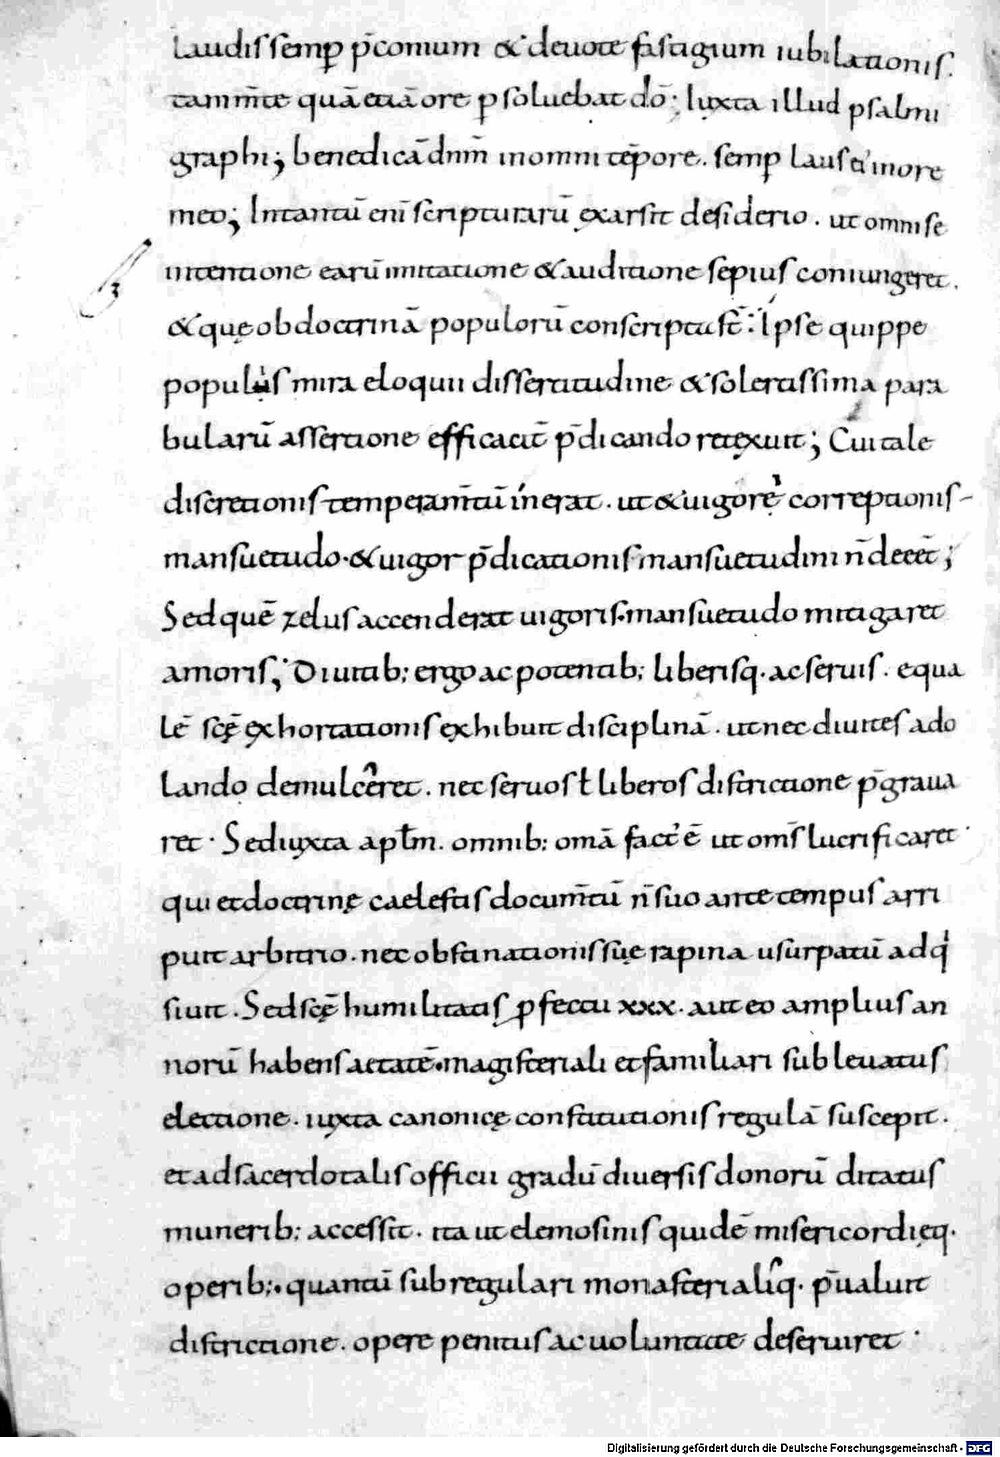 Laudis semꝑ p̄conium & deuote fastigium iubilationis.
tam m̄te quā etiā ore ꝑsoluebat dō; Iuxta illud psalmi
graphi; benedicā dnm̄ in omni tēpore. semꝑ laus ei' in ore
meo; Intantū eni᷄ scripturarū exarsit desiderio. ut omni se
intentione earū imitatione & auditione sepius coniungeret.
& quę ob doctrinā populorū conscriptę st̄: Ipse quippe
populus mira eloquii dissertitudine & solertissima para
bularū assertione efficacit̄ p̄dicando retexuit; Cui tale
discretionis temperam̄tū inerat. ut & uigorē correptionis-
mansuetudo. & uigor p̄dicationis mansuetudini n̄ deeēt;
Sed quē zelus accenderat uigoris. mansuetudo mitigaret
amoris; Diuitib; ergo ac potentib; liberisq. ac seruis. equa
lē scę̄ exhortationis exhibuit disciplinā. ut nec diuites ado
lando demulcēret. nec seruos ł liberos districtione p̄graua
ret. Sed iuxta aptm̄. omnib; omā fact' ē ut om̄s lucrificaret.
qui et doctrinę caelestis docum̄tū n̄ suo ante tempus arri
puit arbitrio. nec obstinationis suę rapina usurpatū adq̇
siuit. Sed scę̄ humilitatis ꝑfectu xxx. aut eo amplius an
norū habens aetatē. magisteriali et familiari subleuatus
electione. iuxta canonicę constitutionis regulā suscepit.
et ad sacerdotalis officii gradū diuersis donorū ditatus
munerib; accessit. ita ut elemosinis quidē misericordięq.
operib;. quantū sub regulari monasterialiq. p̄ualuit
districtione. opere penitus ac uoluntate deseruiret.
Digitalisierung gefördert durch die Deutsche Forschungsgemeinschaft - DFG